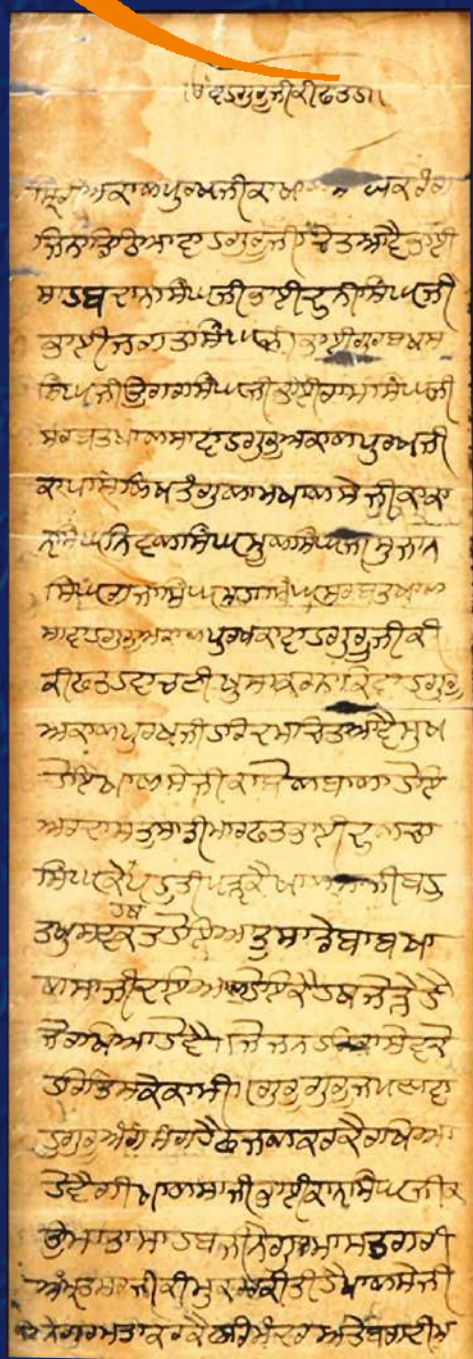 ਵਾਹਗੁਰੂ ਜੀ ਕੀ ਫਤਹ॥
ਅਕਾਲ ਪੁਰਖ ਜੀ ਕਾ
ਵਾਹਗੁਰੂ ਜੀ ਚੇਤ ਆਵੈ ਭਾਈ
ਸਾਹਬ ਦਾਨਾ ਸਿੰਘ ਜੀ ਭਾਈ ਦੁਨੀ ਸਿੰਘ ਜੀ
ਭਾਈ ਜਗਤਾ ਸਿੰਘ ਜੀ ਭਾਈ ਗੁਰਬਖਸ
ਸਿੰਘ ਜੀ ਉਗਰ ਸਿੰਘ ਜੀ ਭਾਈ ਰਾਮਾ ਸਿੰਘ ਜੀ
ਸਰਬਤ ਖਾਲਸਾ ਵਾਹਗੁਰੂ ਅਕਾਲ ਪੁਰਖ ਜੀ
ਕਾ ਪਾਸੋ ਲਿਖਤੰ ਗੁਲਾਮ ਖਾਲਸੇ ਜੀ ਕਾ ਕਾ
ਨ ਸਿੰਘ ਨਿਵਲਾ ਸਿੰਘ ਮੂਲਾ ਸਿੰਘ ਜੀ ਸੁਜਾਨ
ਸਿੰਘ ਸਿੰਘ ਸਿੰਘ ਸਰਬਤ ਖਾਲ
ਸਾ ਵਾਹਗੁਰੂ ਅਕਾਲ ਪੁਰਖ ਕਾ ਵਾਹਗੁਰੂ ਜੀ ਕੀ
ਕੀ ਫਤਹ ਵਾਚਣੀ ਖੁਸ ਕਰਨਾ ਵਾਹਗੁਰੂ
ਅਕਾਲ ਪੁਰਖ ਜੀ ਹਰਿ ਦਮ ਚਿਤ ਆਵੈ ਸੁਖ
ਹੋਇ ਖਾਲਸੇ ਜੀ ਕਾ ਬੋਲ ਬਾਲਾ ਹੋਇ
ਅਰਦਾਸ ਤੁਸਾਡੀ ਮਾਰਫਤ ਭਾਈ ਦੁਲਚਾ
ਸਿੰਘ ਕੇ ਪਹੁਤੀ ਪੜ੍ਹ ਕੈ ਖਾਲਸਾ ਜੀ ਬਹੁ
ਤ ਖੁਸ ਵਕਤ ਹੋਇਆ ਤੁਸਾਡੇ ਬਾਬ ਖਾ
ਲਸਾ ਜੀ ਦਇਆਲ ਹੋਇ ਕੈ ਹਥ ਜੋੜੇ ਹੈ
ਜੋ ਰਖਿਆ ਹੋਵੈ॥ ਜੋ ਜਨ ਹਰਿ ਕਾ ਸੇਵਕੋ
ਹਰਿ ਤਿਸ ਕੇ ਕਾਮੀ॥ ਗੁਰੂ ਗੁਰੂ ਜਪਣਾ ਵਾ
ਹਗੁਰੂ ਅੰਗ ਸੰਗ ਹੈ ਫਜਲ ਕਰ ਕੈ ਰਖਿਆ
ਹੋਵੈਗੀ ਖਾਲਸਾ ਜੀ ਭਾਈ ਕਾਨਾ ਸਿੰਘ ਜੀ ਕ
ਉ ਮਾਤਾ ਸਾਹਬ ਜੀ ਨੇ ਗੁਰਮਾਸਤਗਰੀ
ਅੰਮ੍ਰਤਸਰ ਜੀ ਕੀ ਮੁਕਰਰ ਕੀਤੀ ਹੈ ਖਾਲਸੇ ਜੀ
ਨੇ ਗੁਰਮਤਾ ਕਰ ਕੈ ਹਰਿਮੰਦਰ ਅਤੇ ਬਾਗ ਦੀ